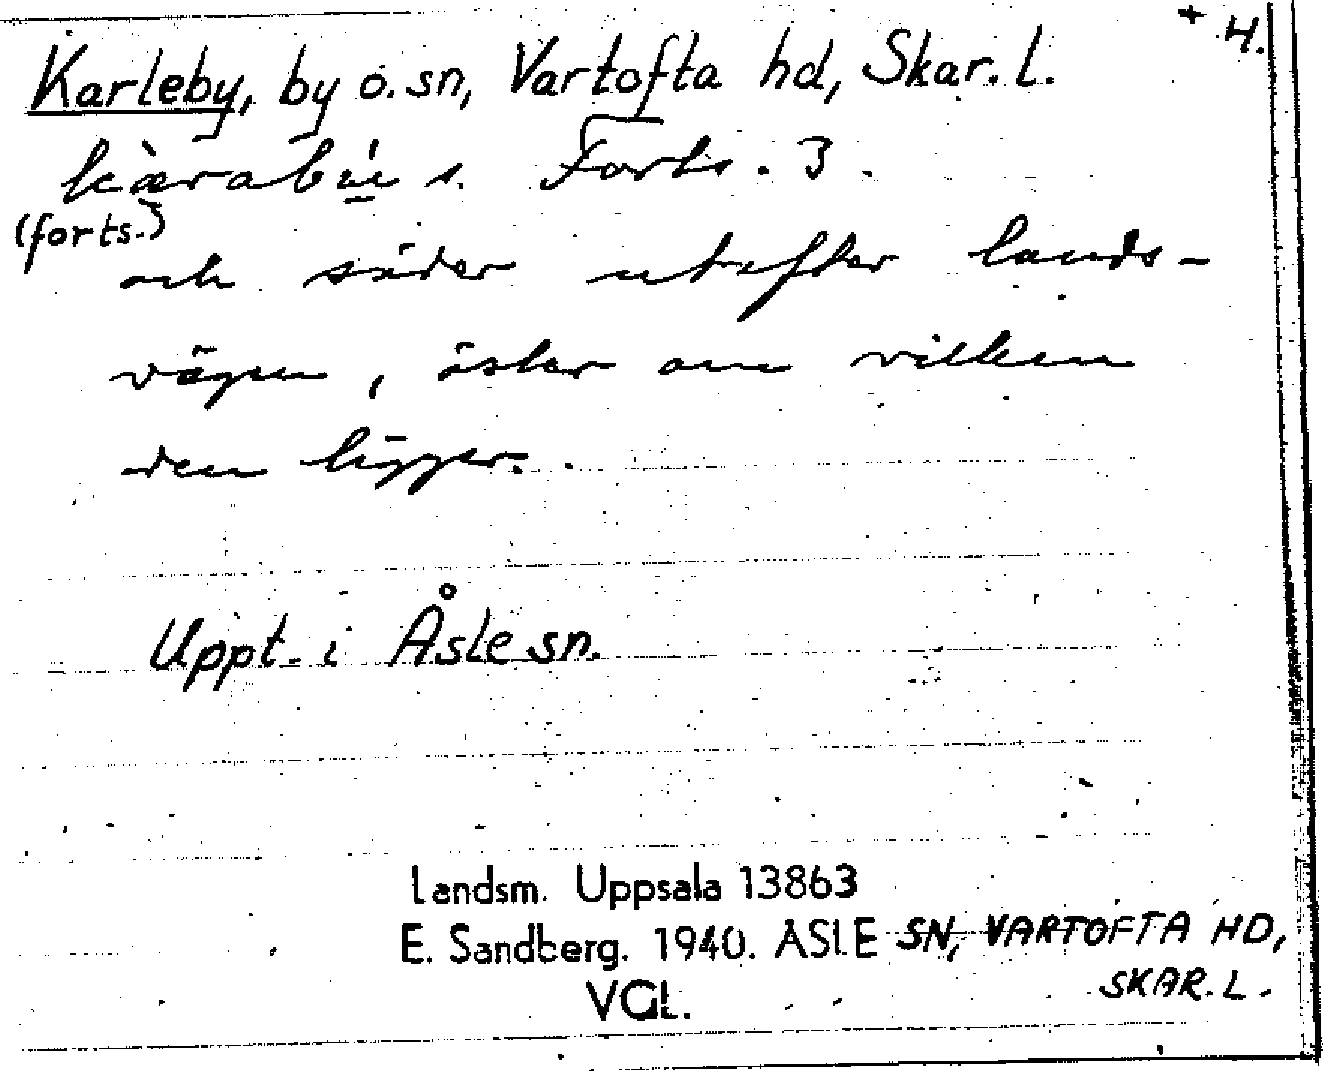 + H.
Karleby, by o. sn, Vartofta hd, Skar. L.
s. Forts. 3.
(forts.)
och söder utefter lands-
vägen, öster om vilken
den ligger.
Uppt. i Åsle sn.
Landsm. Uppsala 13863
E. Sandberg. 1940. ÅSLE SN, VARTOFTA HD,
SKAR. L.
VGL.